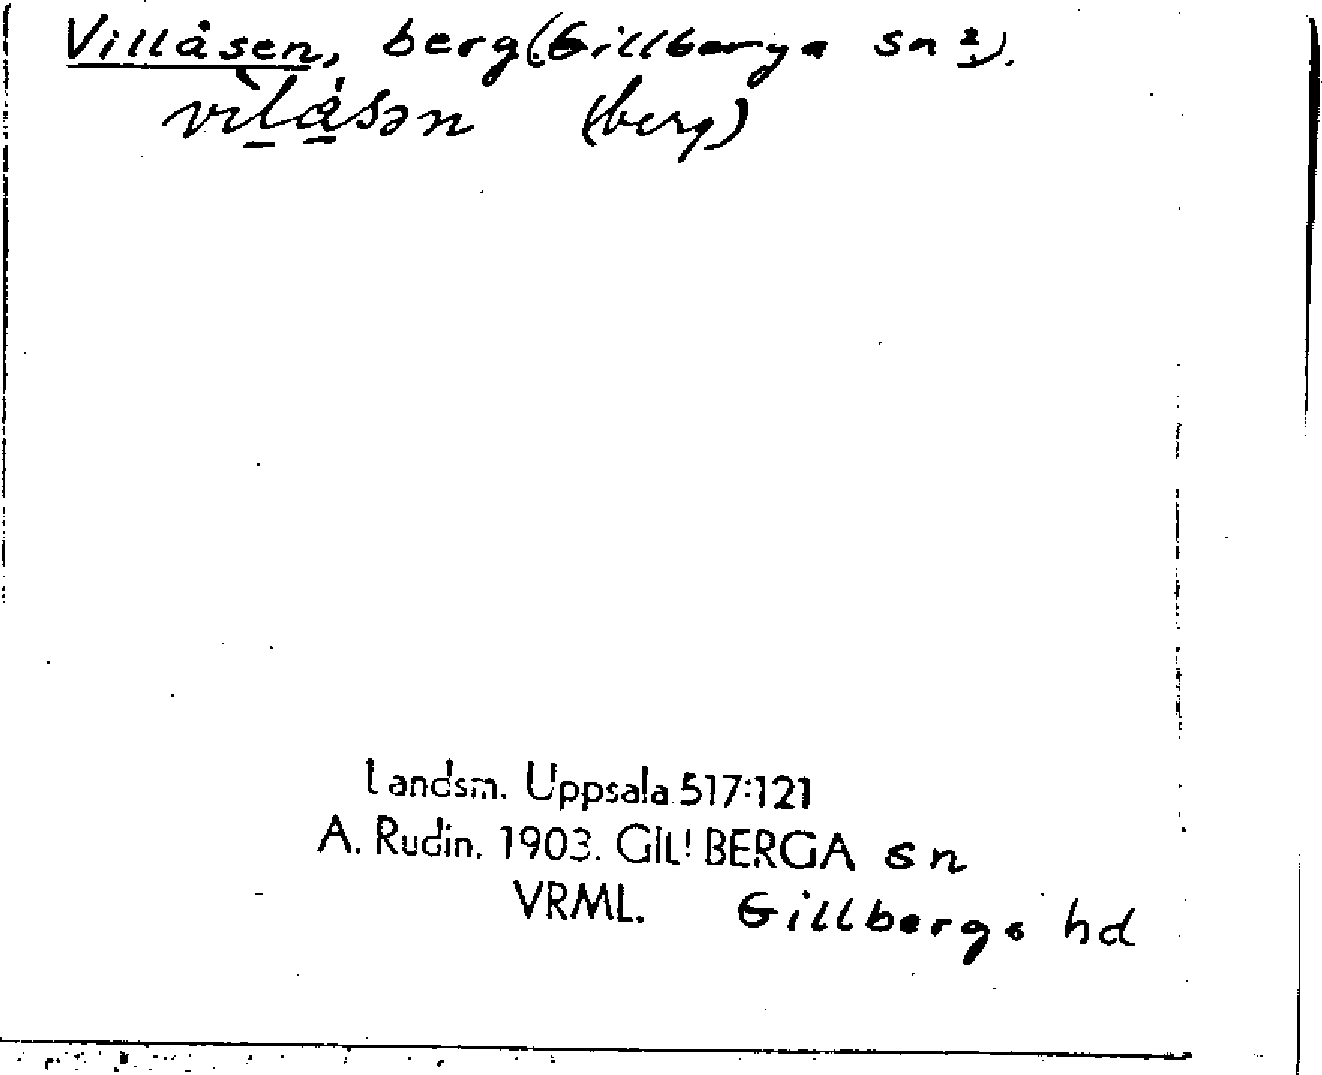 Villåsen, berg (Gillberga sn?).
vìlåsən (berg)
Landsm. Uppsala 517:121
A. Rudin. 1903. GILLBERGA sn
VRML. Gillberga hd